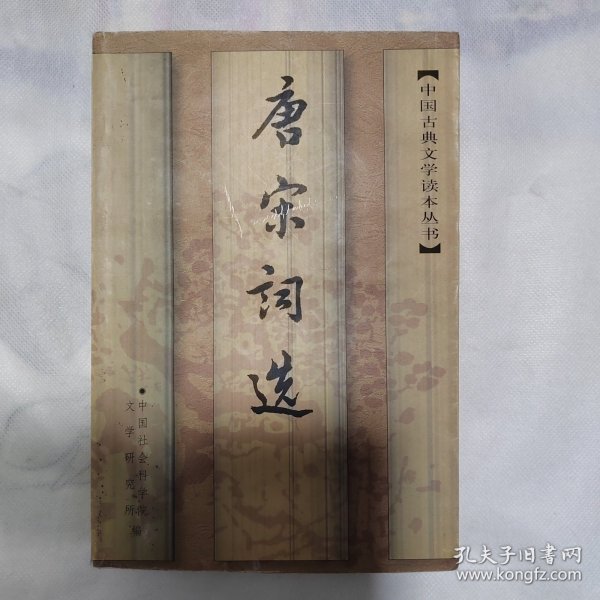 【中国古典文学读本丛书】
唐宋词选
●中国社会科学院
文学研究所 编
孔夫子旧书网
www.kongfz.com